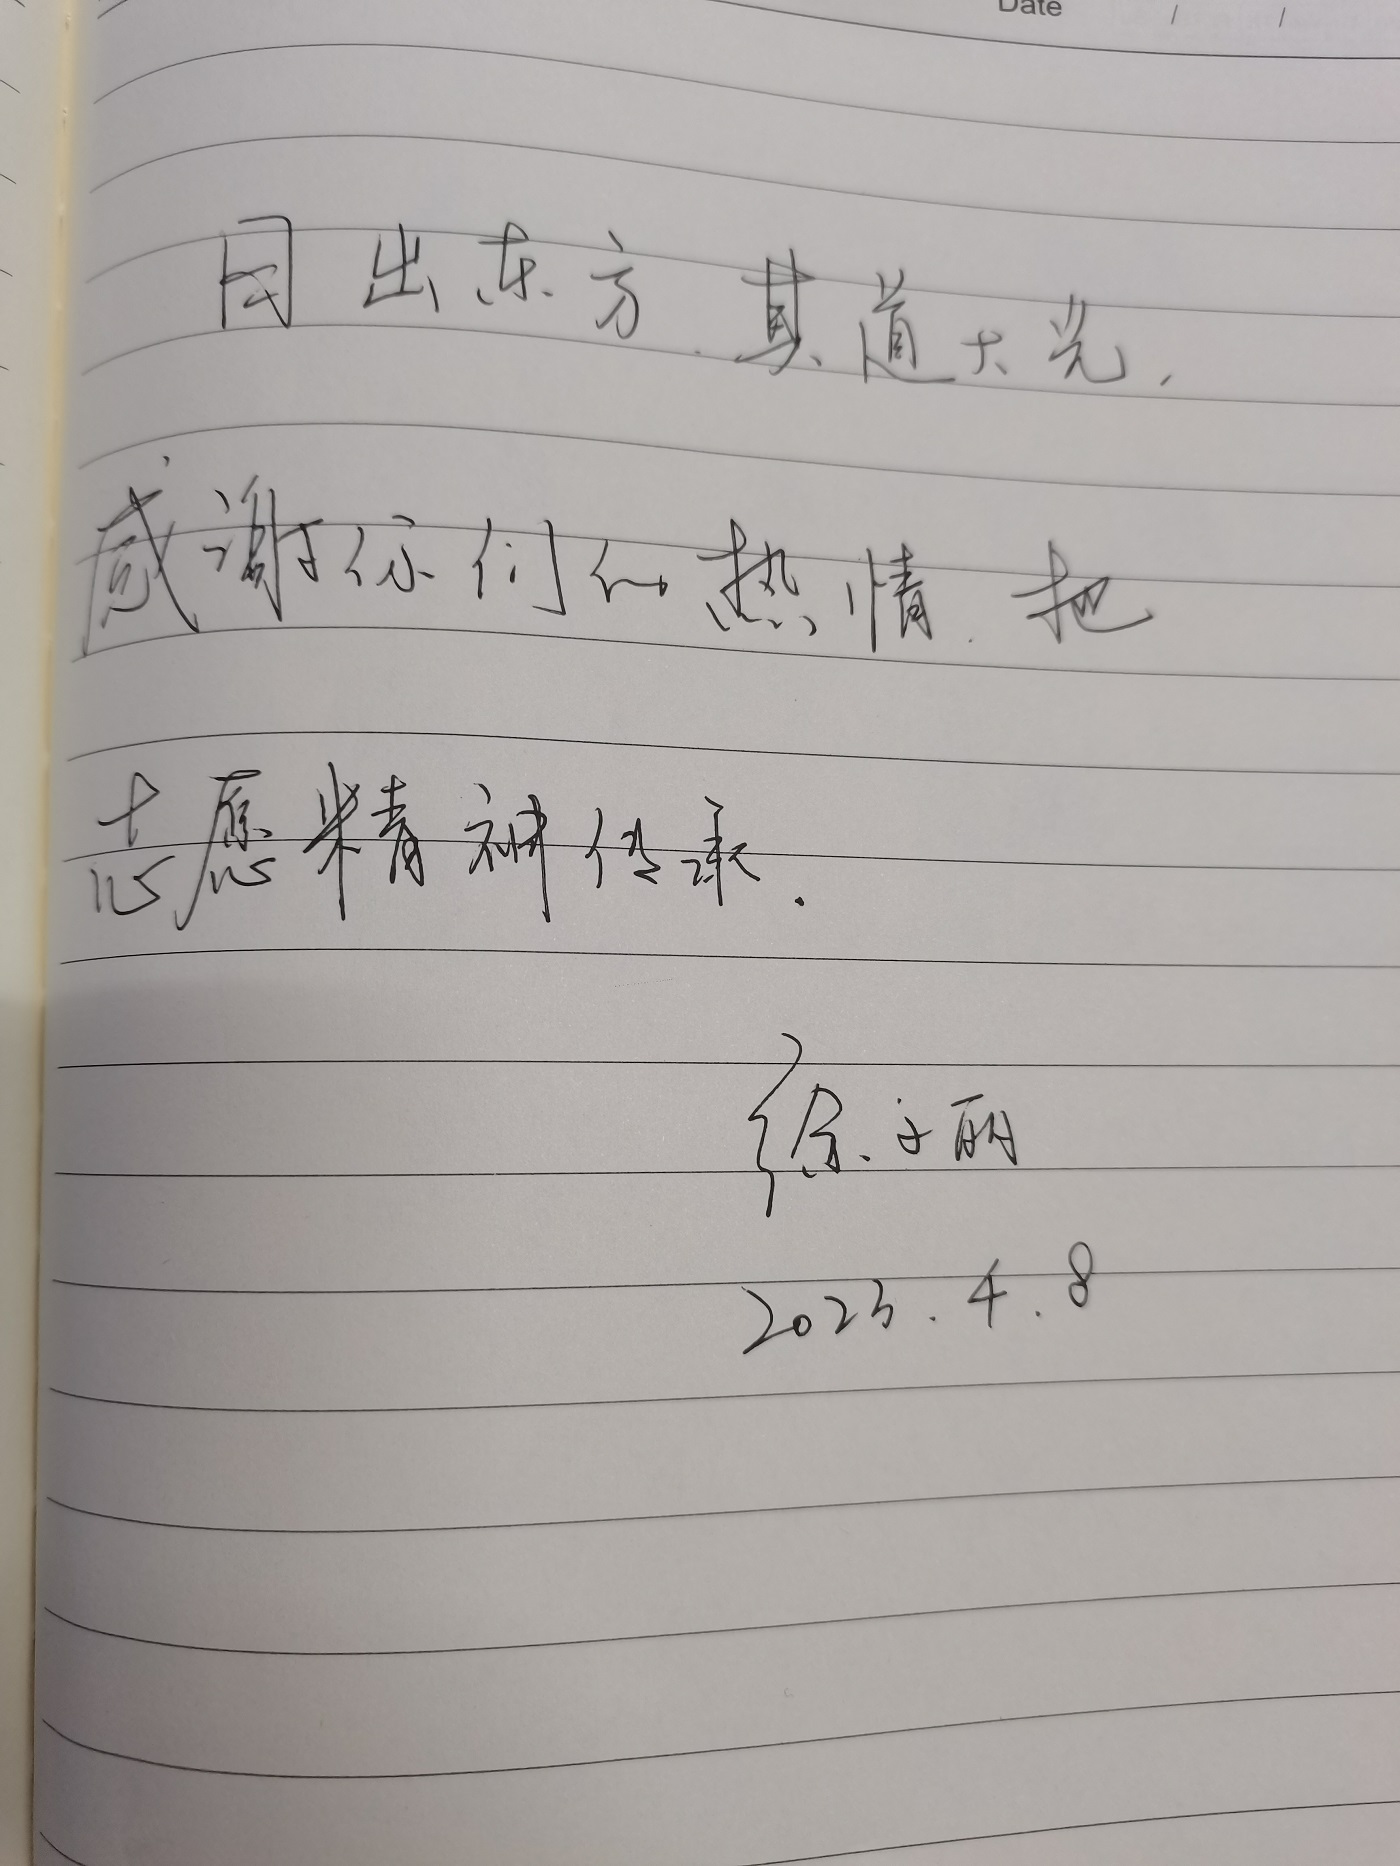 Date / /
日出东方.其道大光,
感谢你们的热情.把
志愿精神传承.
徐 丽
2023.4.8